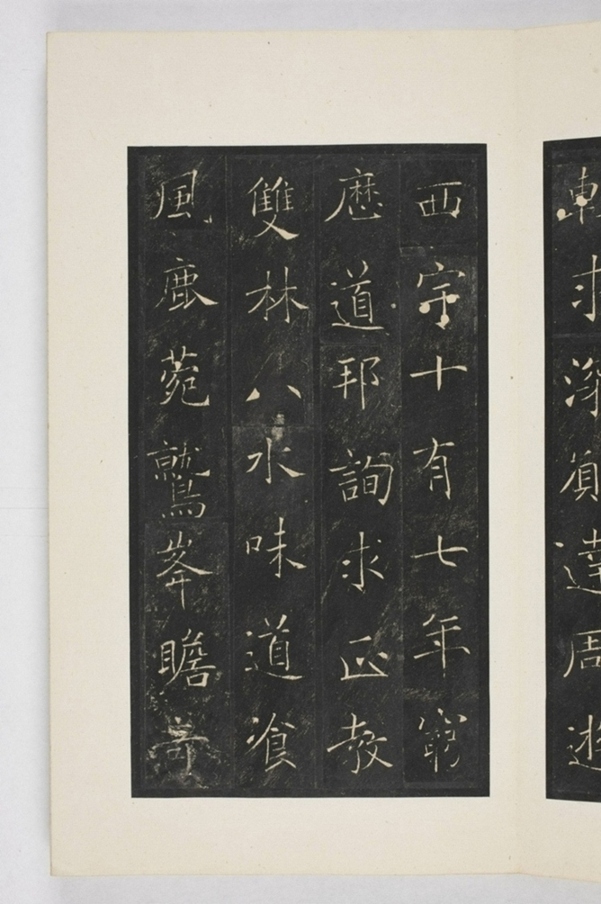 軌求深願達周遊
西宇十有七年窮
歷道邦詢求正教
雙林八水味道飡
風鹿菀鷲峯瞻奇